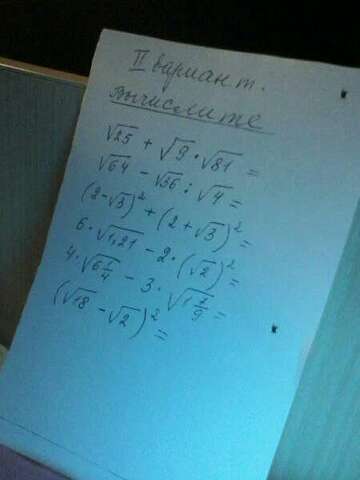 II вариант.
Вычислите
√25 + √9 · √81 =
√64 - √36 : √4 =
(2-√3)² + (2+√3)² =
6·√1,21 - 2·(√2)² =
4·√6 1/4 - 3·√1 7/9 =
(√18 - √2)² =